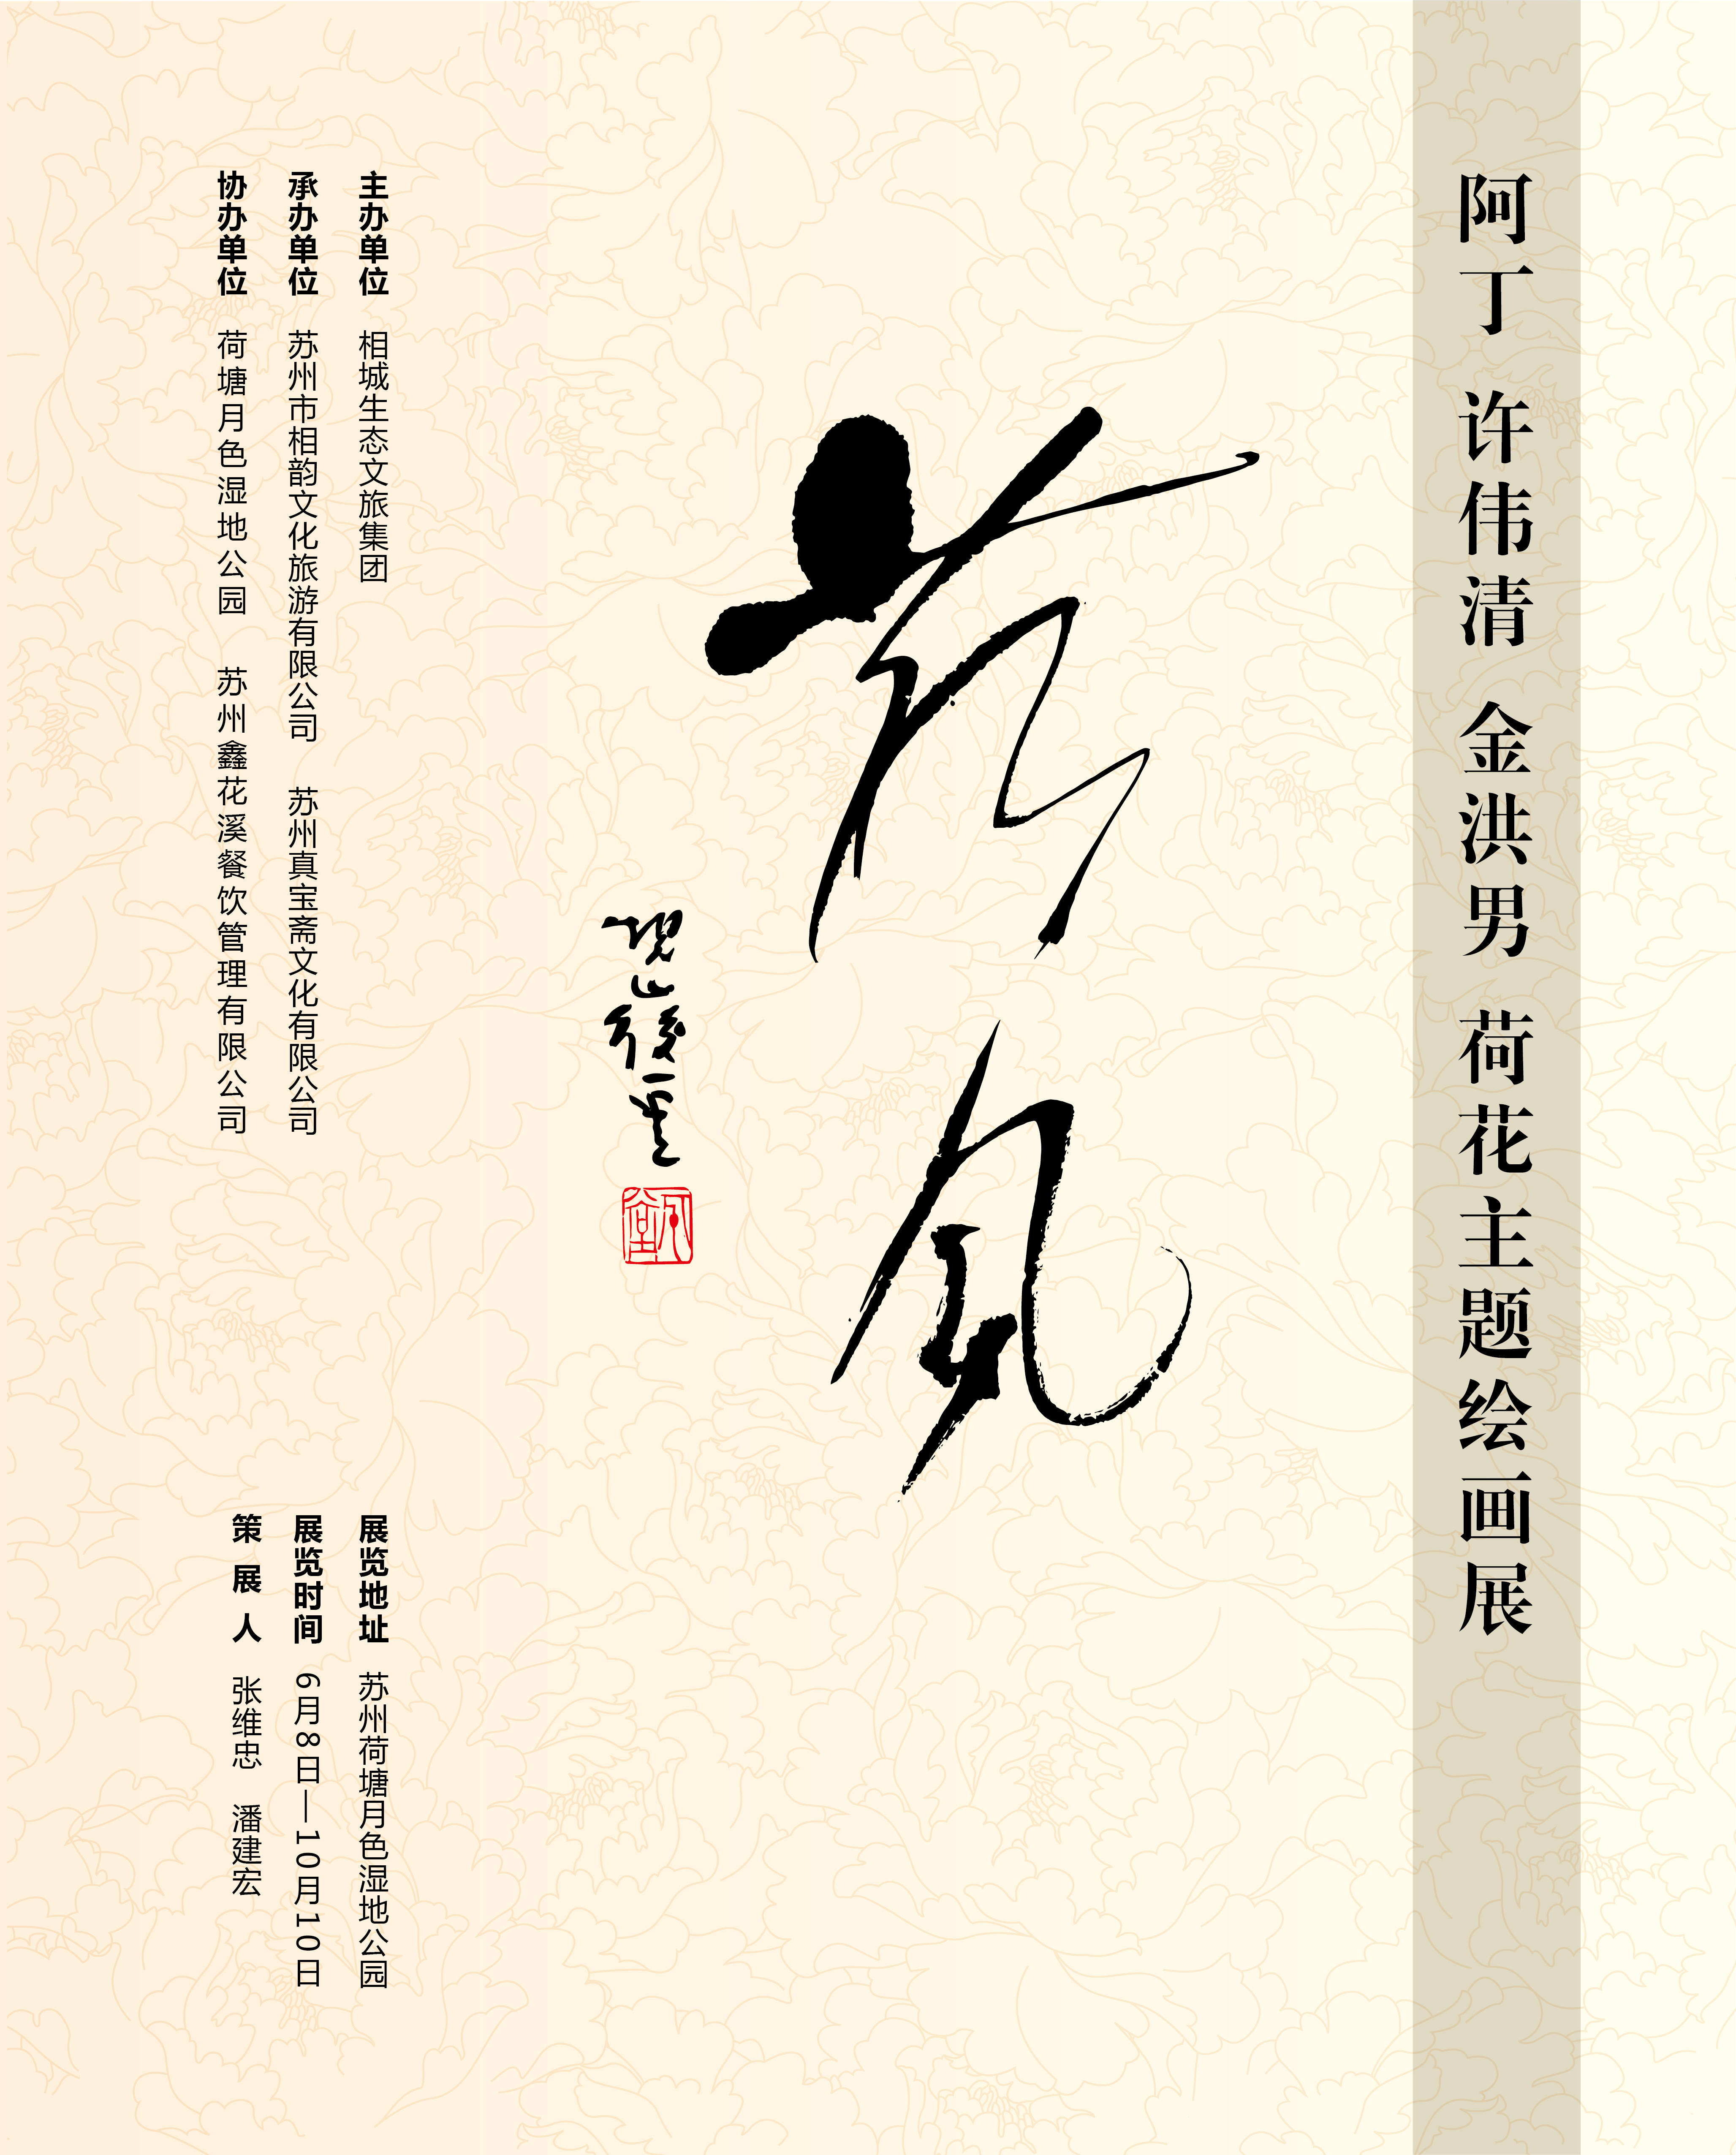 阿丁 许伟清 金洪男 荷花主题绘画展
荷风
主办单位 相城生态文旅集团
承办单位 苏州市相韵文化旅游有限公司 苏州真宝斋文化有限公司
协办单位 荷塘月色湿地公园 苏州鑫花溪餐饮管理有限公司
展览地址 苏州荷塘月色湿地公园
展览时间 6月8日—10月10日
策展人 张维忠 潘建宏